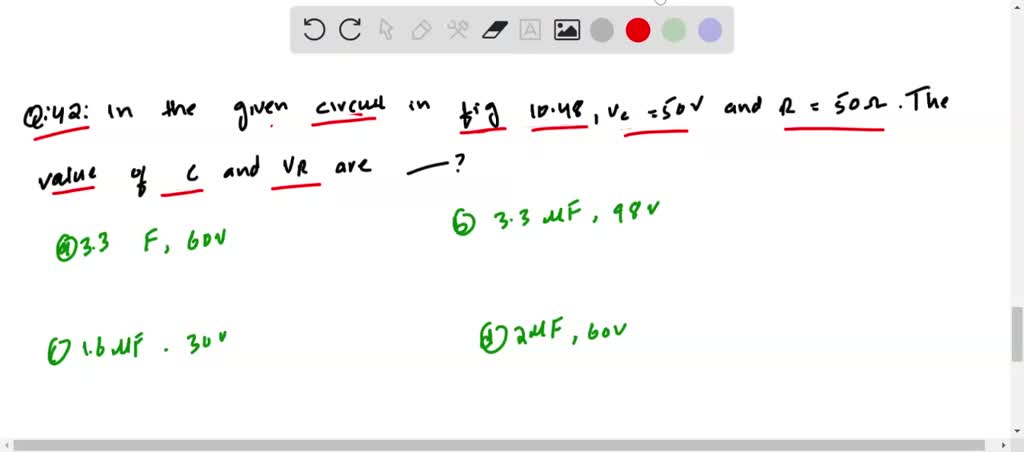 Q:42: In the given circuit in fig 10.48, Vc = 50V and R = 50Ω. The
value of C and VR are —?
ⓐ 3.3 F, 60V
ⓑ 3.3 μF, 98V
ⓒ 1.6 μF. 30V
ⓓ 2μF, 60V